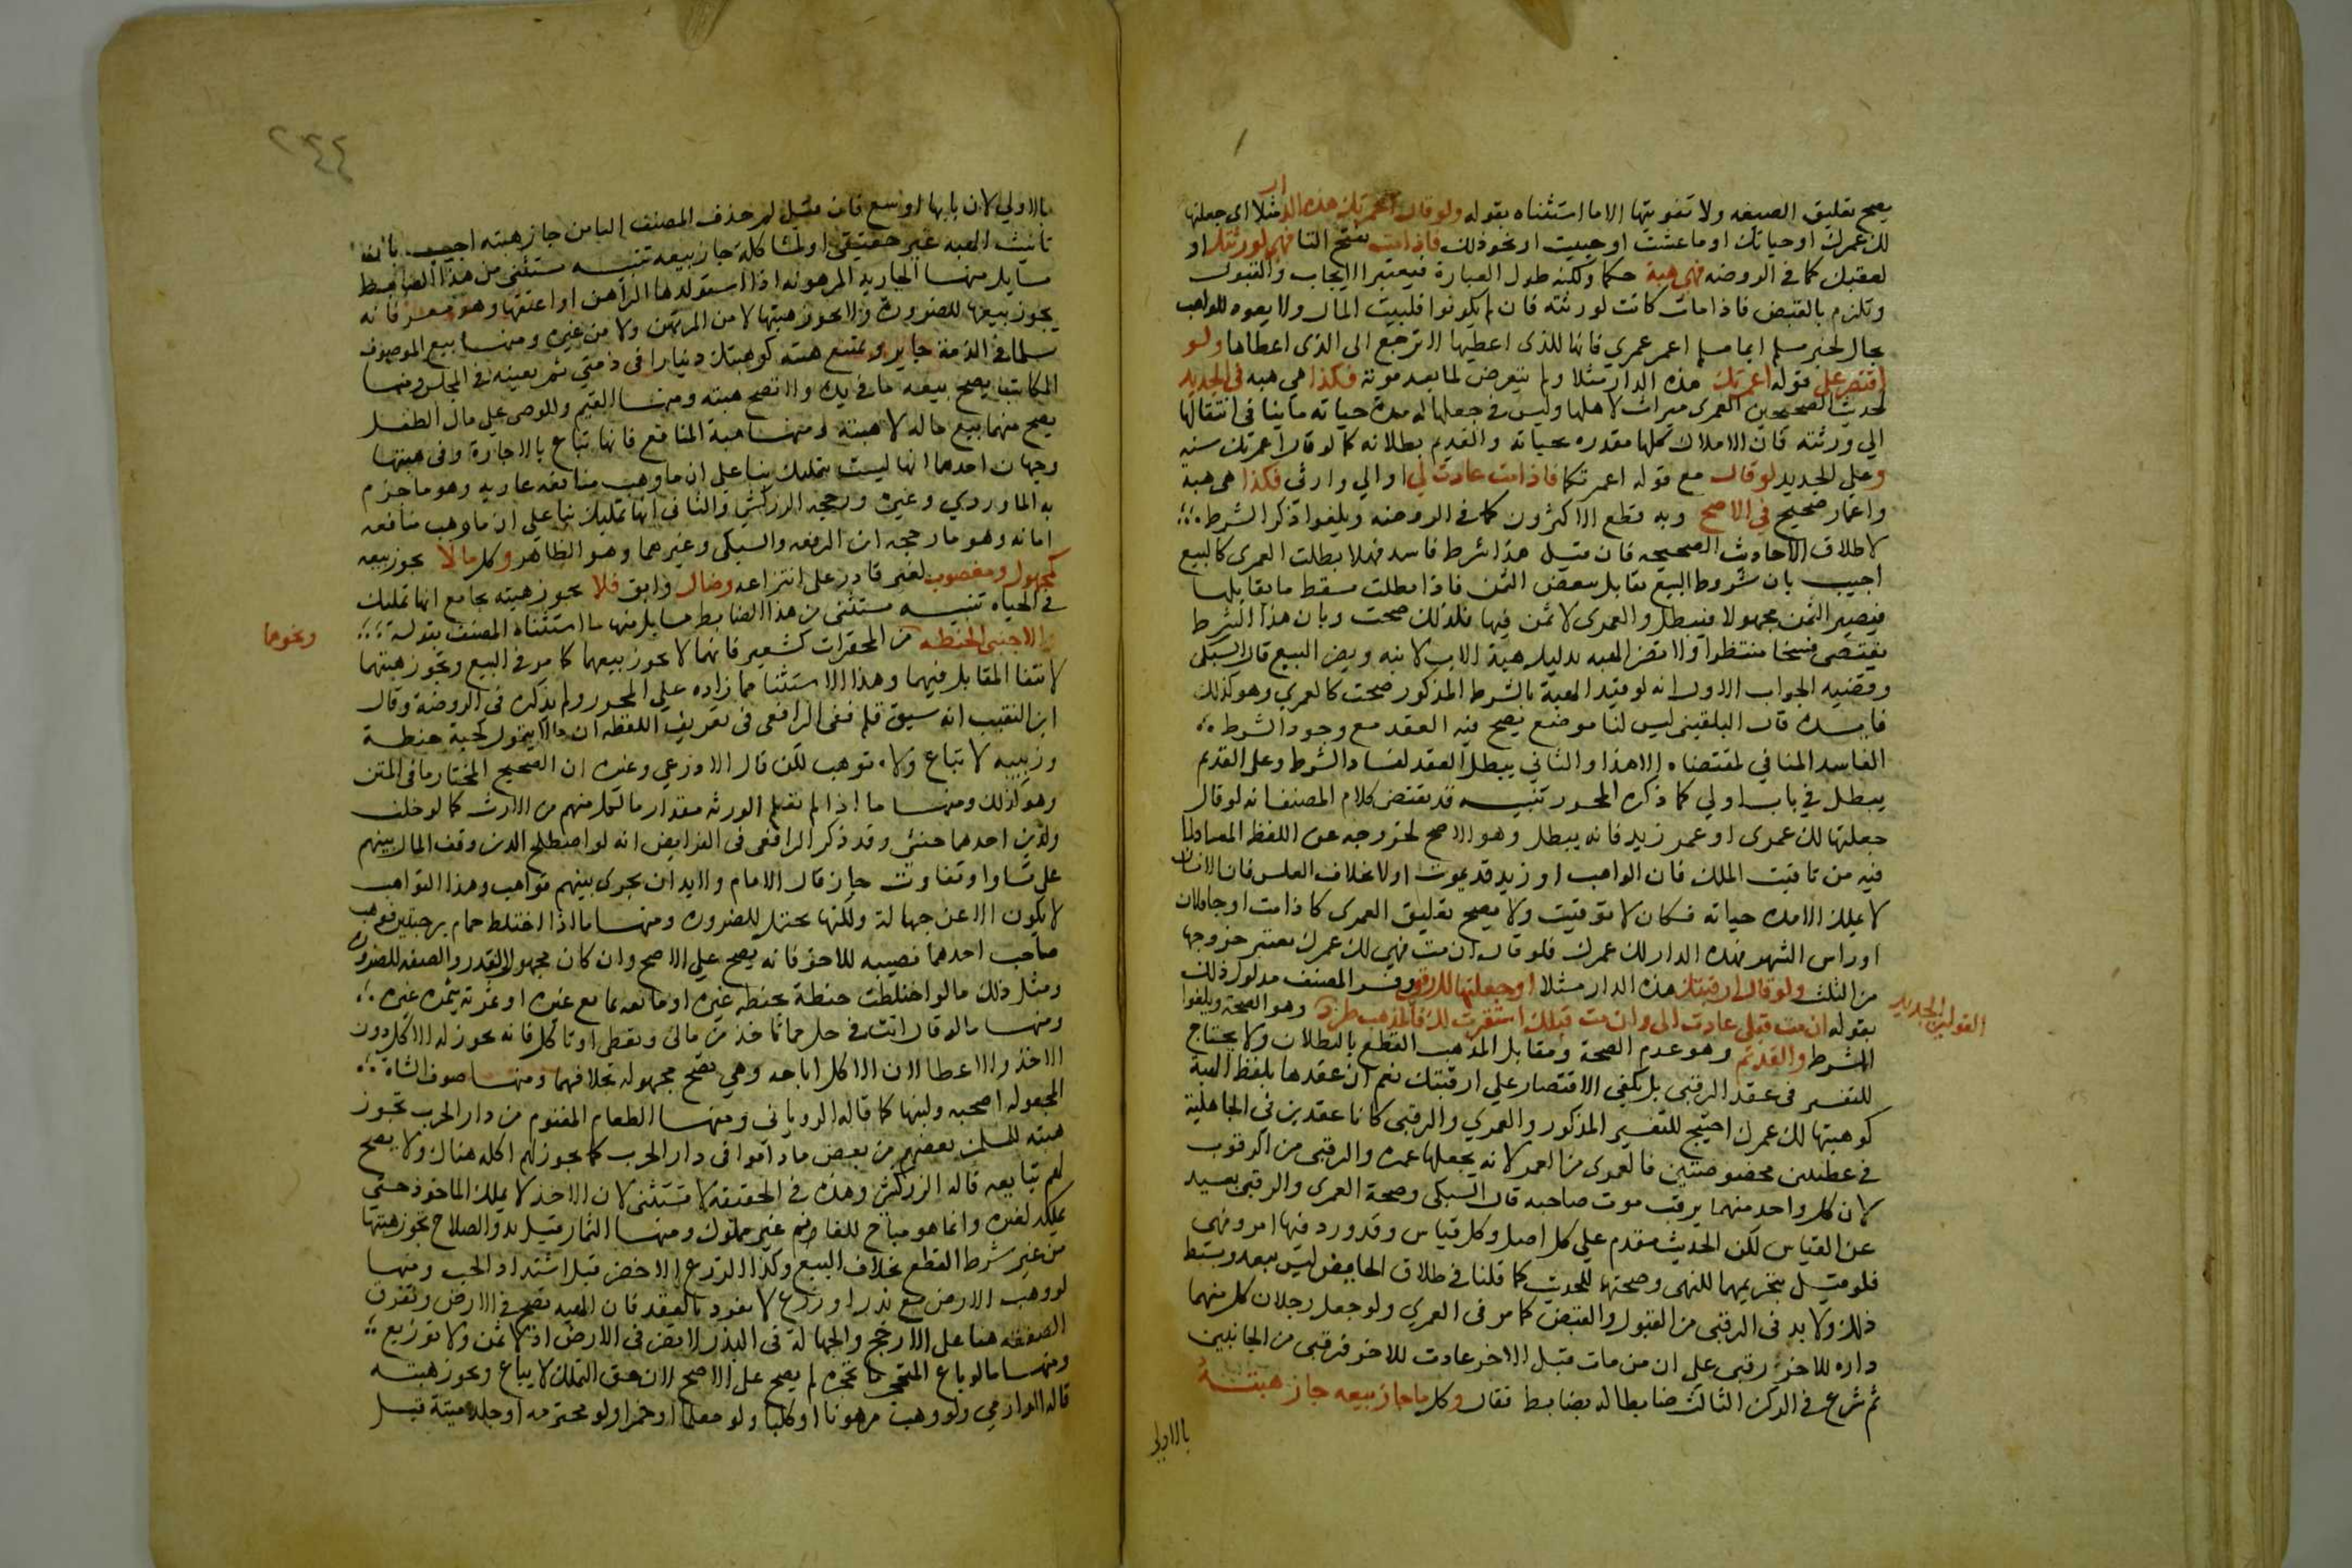 يصح تعليق الصيغه ولا تفويتها الا ما استثناه بقوله ولو قال اعمرتك هذه الدار مثلا اي جعلتها
لك عمرك او حياتك او ما عشت او حييت او نحو ذلك فاذا مت بفتح التا فهي لورثتك او
لعقبك كما في الروضه فهي هبة حكما ولكنه طول العبارة فيعتبر الايجاب والقبول
وتلزم بالقبض فاذا مات كانت لورثته فان لم يكونوا فلبيت المال ولا يعود للواهب
بحال لخبر مسلم ايما مسلم اعمر عمري فانها للذى اعطيها لا ترجع الى الذى اعطاها ولو
اقتصر على قوله اعمرتك هذه الدار مثلا ولم يتعرض لما بعد موته فكذا هي هبه في الجديد
لحديث الصحيحين العمرى ميراث لاهلها وليس في جعلها له مدة حياته ما ينافى انتقالها
الي ورثته فان الاملاك كلها مقدره بحياته والقديم بطلانه كما لو قال اعمرتك سنه
وعلي الجديد لو قال مع قوله اعمرتكما فاذا مت عادت لي او الي وارثي فكذا هي هبه
واعمار صحيح في الاصح وبه قطع الاكثرون كما في الروضه ويلغوا ذكر الشرط
لاطلاق الاحاديث الصحيحه فان قيل هذا شرط فاسد فهلا بطلت العمرى كالبيع
اجيب بان شروط البيع تقابل ببعض الثمن فاذا بطلت سقط ما يقابلها
فيصير الثمن مجهولا فيبطل والعمرى لا ثمن فيها فلذلك صحت وبان هذا الشرط
يقتضي فسخا منتظرا ولا يضر الهبه بدليل هبة الاب لابنه ويضر البيع قال السبكى
وقضيه الجواب الاول انه لو قيد الهبة بالشرط المذكور صحت كالعمري وهو كذلك
فايده قال البلقينى ليس لنا موضع يصح فيه العقد مع وجود الشرط
الفاسد المنافي لمقتضاه الا هذا والثاني يبطل العقد لفساد الشرط وعلى القديم
يبطل في باب اولي كما ذكره المحرر تنبيه قد يقتضى كلام المصنف انه لو قال
جعلتها لك عمرى او عمر زيد فانه يبطل وهو الاصح لخروجه عن اللفظ المعتاد لما
فيه من تاقيت الملك فان الواهب او زيد قد يموت اولا بخلاف العكس فان الانسان
لا يملك الا مدة حياته فكان لا توقيت ولا يصح تعليق العمرى كاذا مت او جا فلان
او راس الشهر فهذه الدار لك عمرك فلو قال ان مت فهي لك عمرك يعتبر خروجها
من الثلث ولو قال ارقبتك هذه الدار مثلا او جعلتها لك رقبى وفسر المصنف مدلول ذلك
بقوله ان مت قبلي عادت الى وان مت قبلك استقرت لك فالمذهب طرد وهو الصحة ويلغوا
القولين الجديد
الشرط والقديم وهو عدم الصحة ومقابل المذهب القطع بالبطلان ولا يحتاج
للتفسير في عقد الرقبى بل يكفي الاقتصار علي ارقبتك نعم ان عقدها بلفظ الهبة
كوهبتها لك عمرك احتيج للتفسير المذكور والعمري والرقبى كانا عقدين في الجاهلية
في عطيتين مخصوصتين فالعمرى من العمر لانه يجعلها عمره والرقبى من الرقوب
لان كل واحد منهما يرقب موت صاحبه قال السبكى وصحة العمرى والرقبى بعيد
عن القياس لكن الحديث مقدم علي كل اصل وكل قياس وقد ورد فيها امر ونهى
فلو قيل بتحريمهما للنهى وصحتها للحديث كما قلنا في طلاق الحايض ليس ببعد وبسط
ذلك ولا بد فى الرقبى من القبول والقبض كما مر فى العمرى ولو جعل رجلان كل منهما
داره للاخر رقبى على ان من مات قبل الاخر عادت للاخر فرقبى من الجانبين
ثم شرع في الركن الثالث ضابطا له بضابط فقال وكل ما جاز بيعه جاز هبته
بالاولي
٢٤٤
بالاولي لان بابها اوسع فان قيل لم حذف المصنف التا من جاز هبته اجيب بان
تانيث الهبه غير حقيقي او لمشاكلة جاز بيعه تنبيه مستثنى من هذا الضابط
مسايل منها الجاريه المرهونه اذا استولدها الراهن او اعتقها وهو معسر فانه
يجوز بيعها للضرورة ولا يجوز هبتها لا من المرتهن ولا من غيره ومنها بيع الموصوف
سلما في الذمة جايز ويمتنع هبته كوهبتك دينارا في ذمتي ثم بعينه في المجلس ومنها
المكاتب يصح بيعه ما في يده ولا تصح هبته ومنها القيم والموصى علي مال الطفل
يصح منهما بيع ماله لا هبته ومنها هبة المنافع فانها تباع بالاجارة وفي هبتها
وجهان احدهما انها ليست بتمليك بنا على ان ما وهب منافعه عاريه وهو ما جزم
به الماوردي وغيره ورجحه الزركشي والثاني انها تمليك بنا علي ان ما وهب منافعه
امانه وهو ما رجحه ابن الرفعه والسبكى وغيرهما وهو الظاهر وكل ما لا يجوز بيعه
كمجهول ومغصوب لغير قادر على انتزاعه وضال وابق فلا يجوز هبته بجامع انها تمليك
في الحياه تنبيه مستثنى من هذا الضابط مسايل منها ما استثناه المصنف بقوله
الا حبتي الحنطه ونحوها من المحقرات كشعير فانهما لا يجوز بيعهما كما مر في البيع وتجوز هبتهما
لانتفا المقابل فيهما وهذا الاستثنا مما زاده علي المحرر ولم يذكره في الروضة وقال
ابن النقيب انه سبق قلم ففي الرافعى فى تعريف اللقطه ان ما لا يتمول كحبة حنطة
وزبيبه لا تباع ولا توهب لكن قال الاذرعي وغيره ان الصحيح المختار ما فى المتن
وهو كذلك ومنها ما اذا لم تعلم الورثه مقدار ما لكل منهم من الارث كما لو خلف
ولدين احدهما خنثي وقد ذكر الرافعى فى الفرايض انه لو اصطلح الذين وقف المال بينهم
على تساو او تفاوت جاز قال الامام ولا بد ان يجرى بينهم تواهب وهذا التواهب
لا يكون الا عن جهالة ولكنها تحتمل للضروره ومنها ما اذا اختلط حمام برجين فوهب
صاحب احدهما نصيبه للاخر فانه يصح علي الاصح وان كان مجهول القدر والصفه للضرورة
ومثل ذلك ما لو اختلطت حنطة بحنطة غيره او مائعه بمائع غيره او غرته بثمره غيره
ومنها ما لو قال انت في حل مما تاخذ من مالى وتعطى او تاكل فانه يجوز له الاكل دون
الاخذ والاعطا لان الاكل اباحه وهي تصح مجهوله بخلافهما ومنها صوف الشاة
المجعوله اضحيه ولبنها كما قاله الروياني ومنها الطعام المغنوم من دار الحرب تجوز
هبته للمسلمين بعضهم من بعض ما داموا في دار الحرب كما يجوز لهم اكله هناك ولا يصح
لهم تبايعه قاله الزركشي وهذه في الحقيقة لا تستثنى لان الاخذ لا يملك الماخوذ حتى
يملكه لغيره وانما هو مباح للغانم غير مملوك ومنها الثمار قبل بدو الصلاح تجوز هبتها
من غير شرط القطع بخلاف البيع وكذا الزرع الاخضر قبل اشتداد الحب ومنها
لو وهب الارض مع بذر او زرع لا يفرد بالعقد فان الهبه تصح في الارض وتفرق
الصفقه هنا على الارجح والجهالة في البذر لا تضر في الارض اذ لا ثمن ولا توزيع
ومنها ما لو باع المتحجر ما تحجره لم يصح على الاصح لان حق التملك لا يباع وتجوز هبته
قاله الدارمي ولو وهب مرهونا او كلبا ولو معلما او خمرا ولو محترمه او جلد ميتة قبل